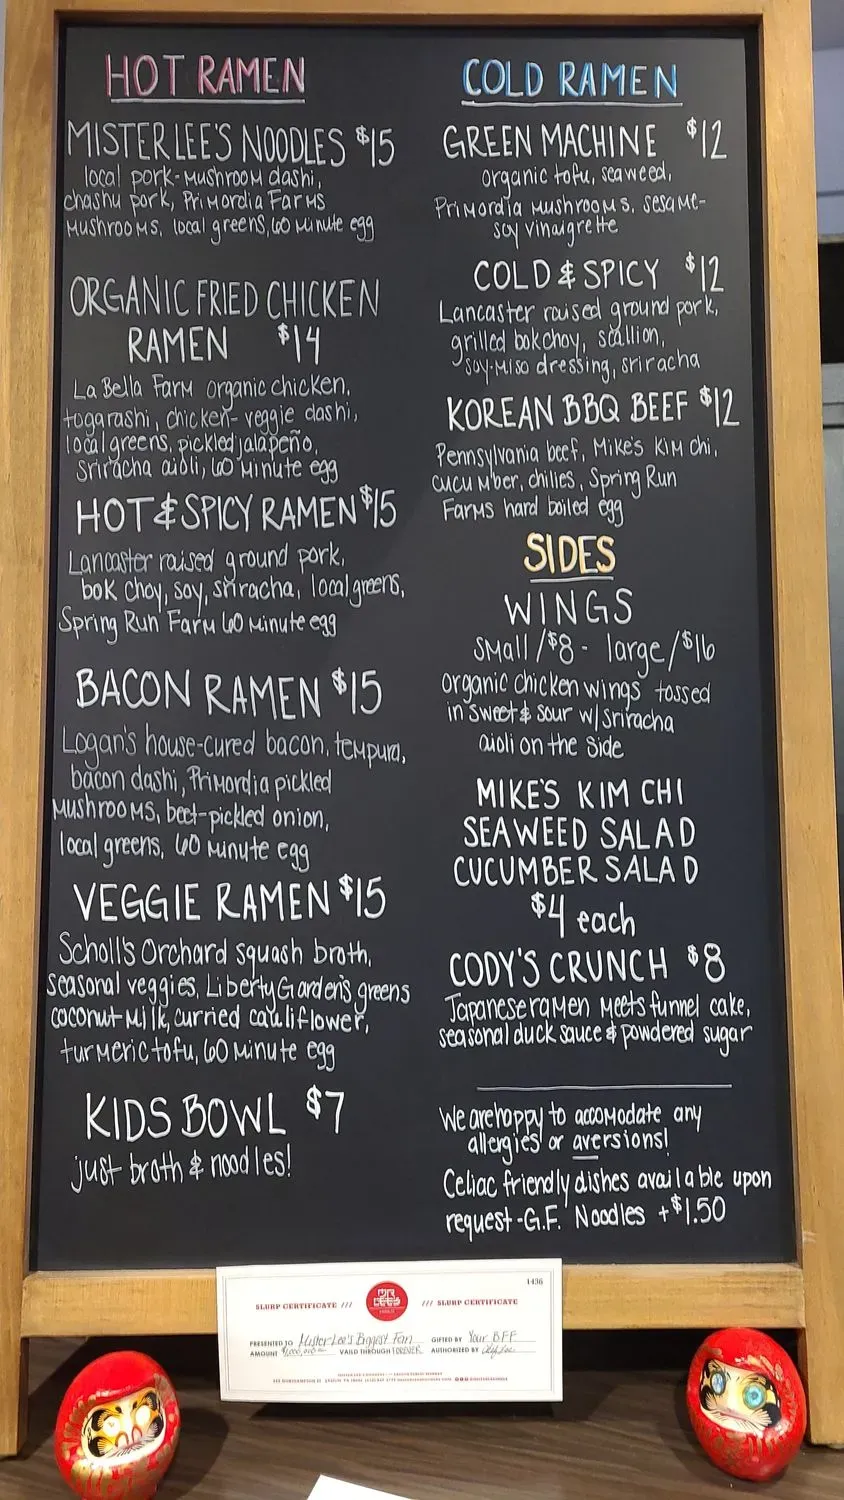 HOT RAMEN
MISTER LEE'S NOODLES $15
local pork-mushroom dashi,
chashu pork, Primordia Farms
Mushrooms, local greens, 60 minute egg
ORGANIC FRIED CHICKEN
RAMEN $14
La Bella Farm organic chicken,
togarashi, chicken-veggie dashi,
local greens, pickled jalapeño,
Sriracha aioli, 60 minute egg
HOT & SPICY RAMEN $15
Lancaster raised ground pork,
bok choy, soy, sriracha, local greens,
Spring Run Farm 60 minute egg
BACON RAMEN $15
Logan's house-cured bacon, tempura,
bacon dashi, Primordia pickled
mushrooms, beet-pickled onion,
local greens, 60 minute egg
VEGGIE RAMEN $15
Scholl's Orchard squash broth,
seasonal veggies, Liberty Garden's greens
coconut milk, curried cauliflower,
turmeric tofu, 60 minute egg
KIDS BOWL $7
just broth & noodles!
COLD RAMEN
GREEN MACHINE $12
organic tofu, seaweed,
Primordia mushrooms, sesame-
soy vinaigrette
COLD & SPICY $12
Lancaster raised ground pork,
grilled bokchoy, scallion,
soy-miso dressing, sriracha
KOREAN BBQ BEEF $12
Pennsylvania beef, Mike's Kim chi,
cucumber, chilies, Spring Run
Farms hard boiled egg
SIDES
WINGS
small/$8 - large/$16
organic chicken wings tossed
in sweet & sour w/sriracha
aioli on the side
MIKE'S KIM CHI
SEAWEED SALAD
CUCUMBER SALAD
$4 each
CODY'S CRUNCH $8
Japanese ramen meets funnel cake,
seasonal duck sauce & powdered sugar
We are happy to accomodate any
allergies or aversions!
Celiac friendly dishes available upon
request - G.F. Noodles +$1.50
1436
SLURP CERTIFICATE /// MR LEE'S /// SLURP CERTIFICATE
PRESENTED TO Mister Lee's Biggest Fan GIFTED BY Your BFF
AMOUNT VAILD THROUGH FOREVER AUTHORIZED BY